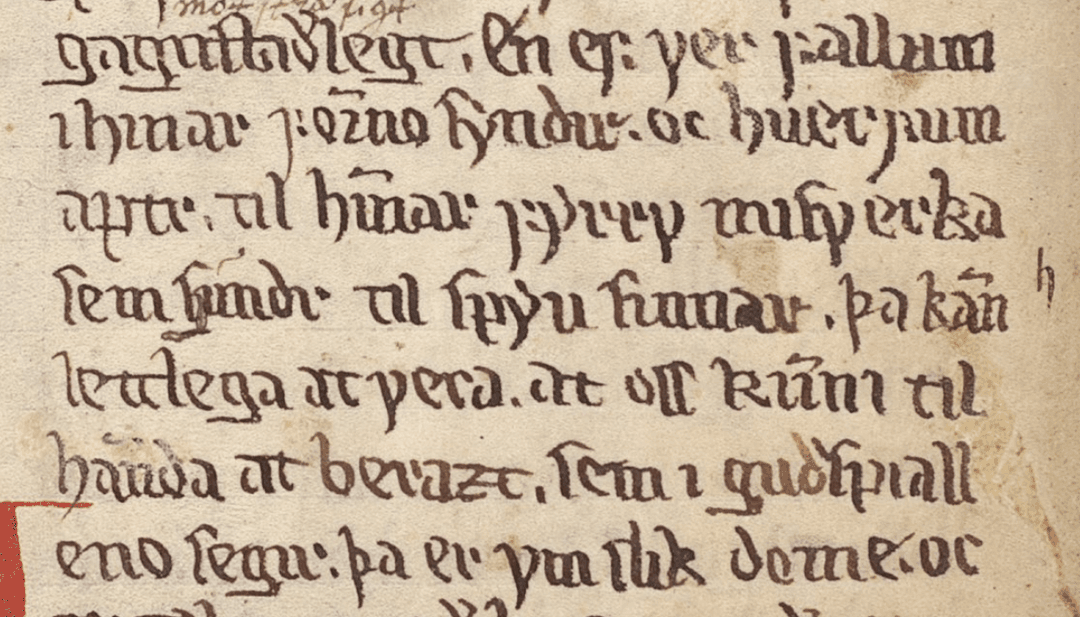 gagnstaðlegt. En ef ver fallum
i hinar forno synder. oc huerfum
aptr. til hinar fyrry misverka
sem hundr til spyu sinnar. þa kan̄
lettlega at vera. at oss kun̄ni til
han̄da at berazt. sem i guðspiall
eno seger. þa er ym slik dome. oc